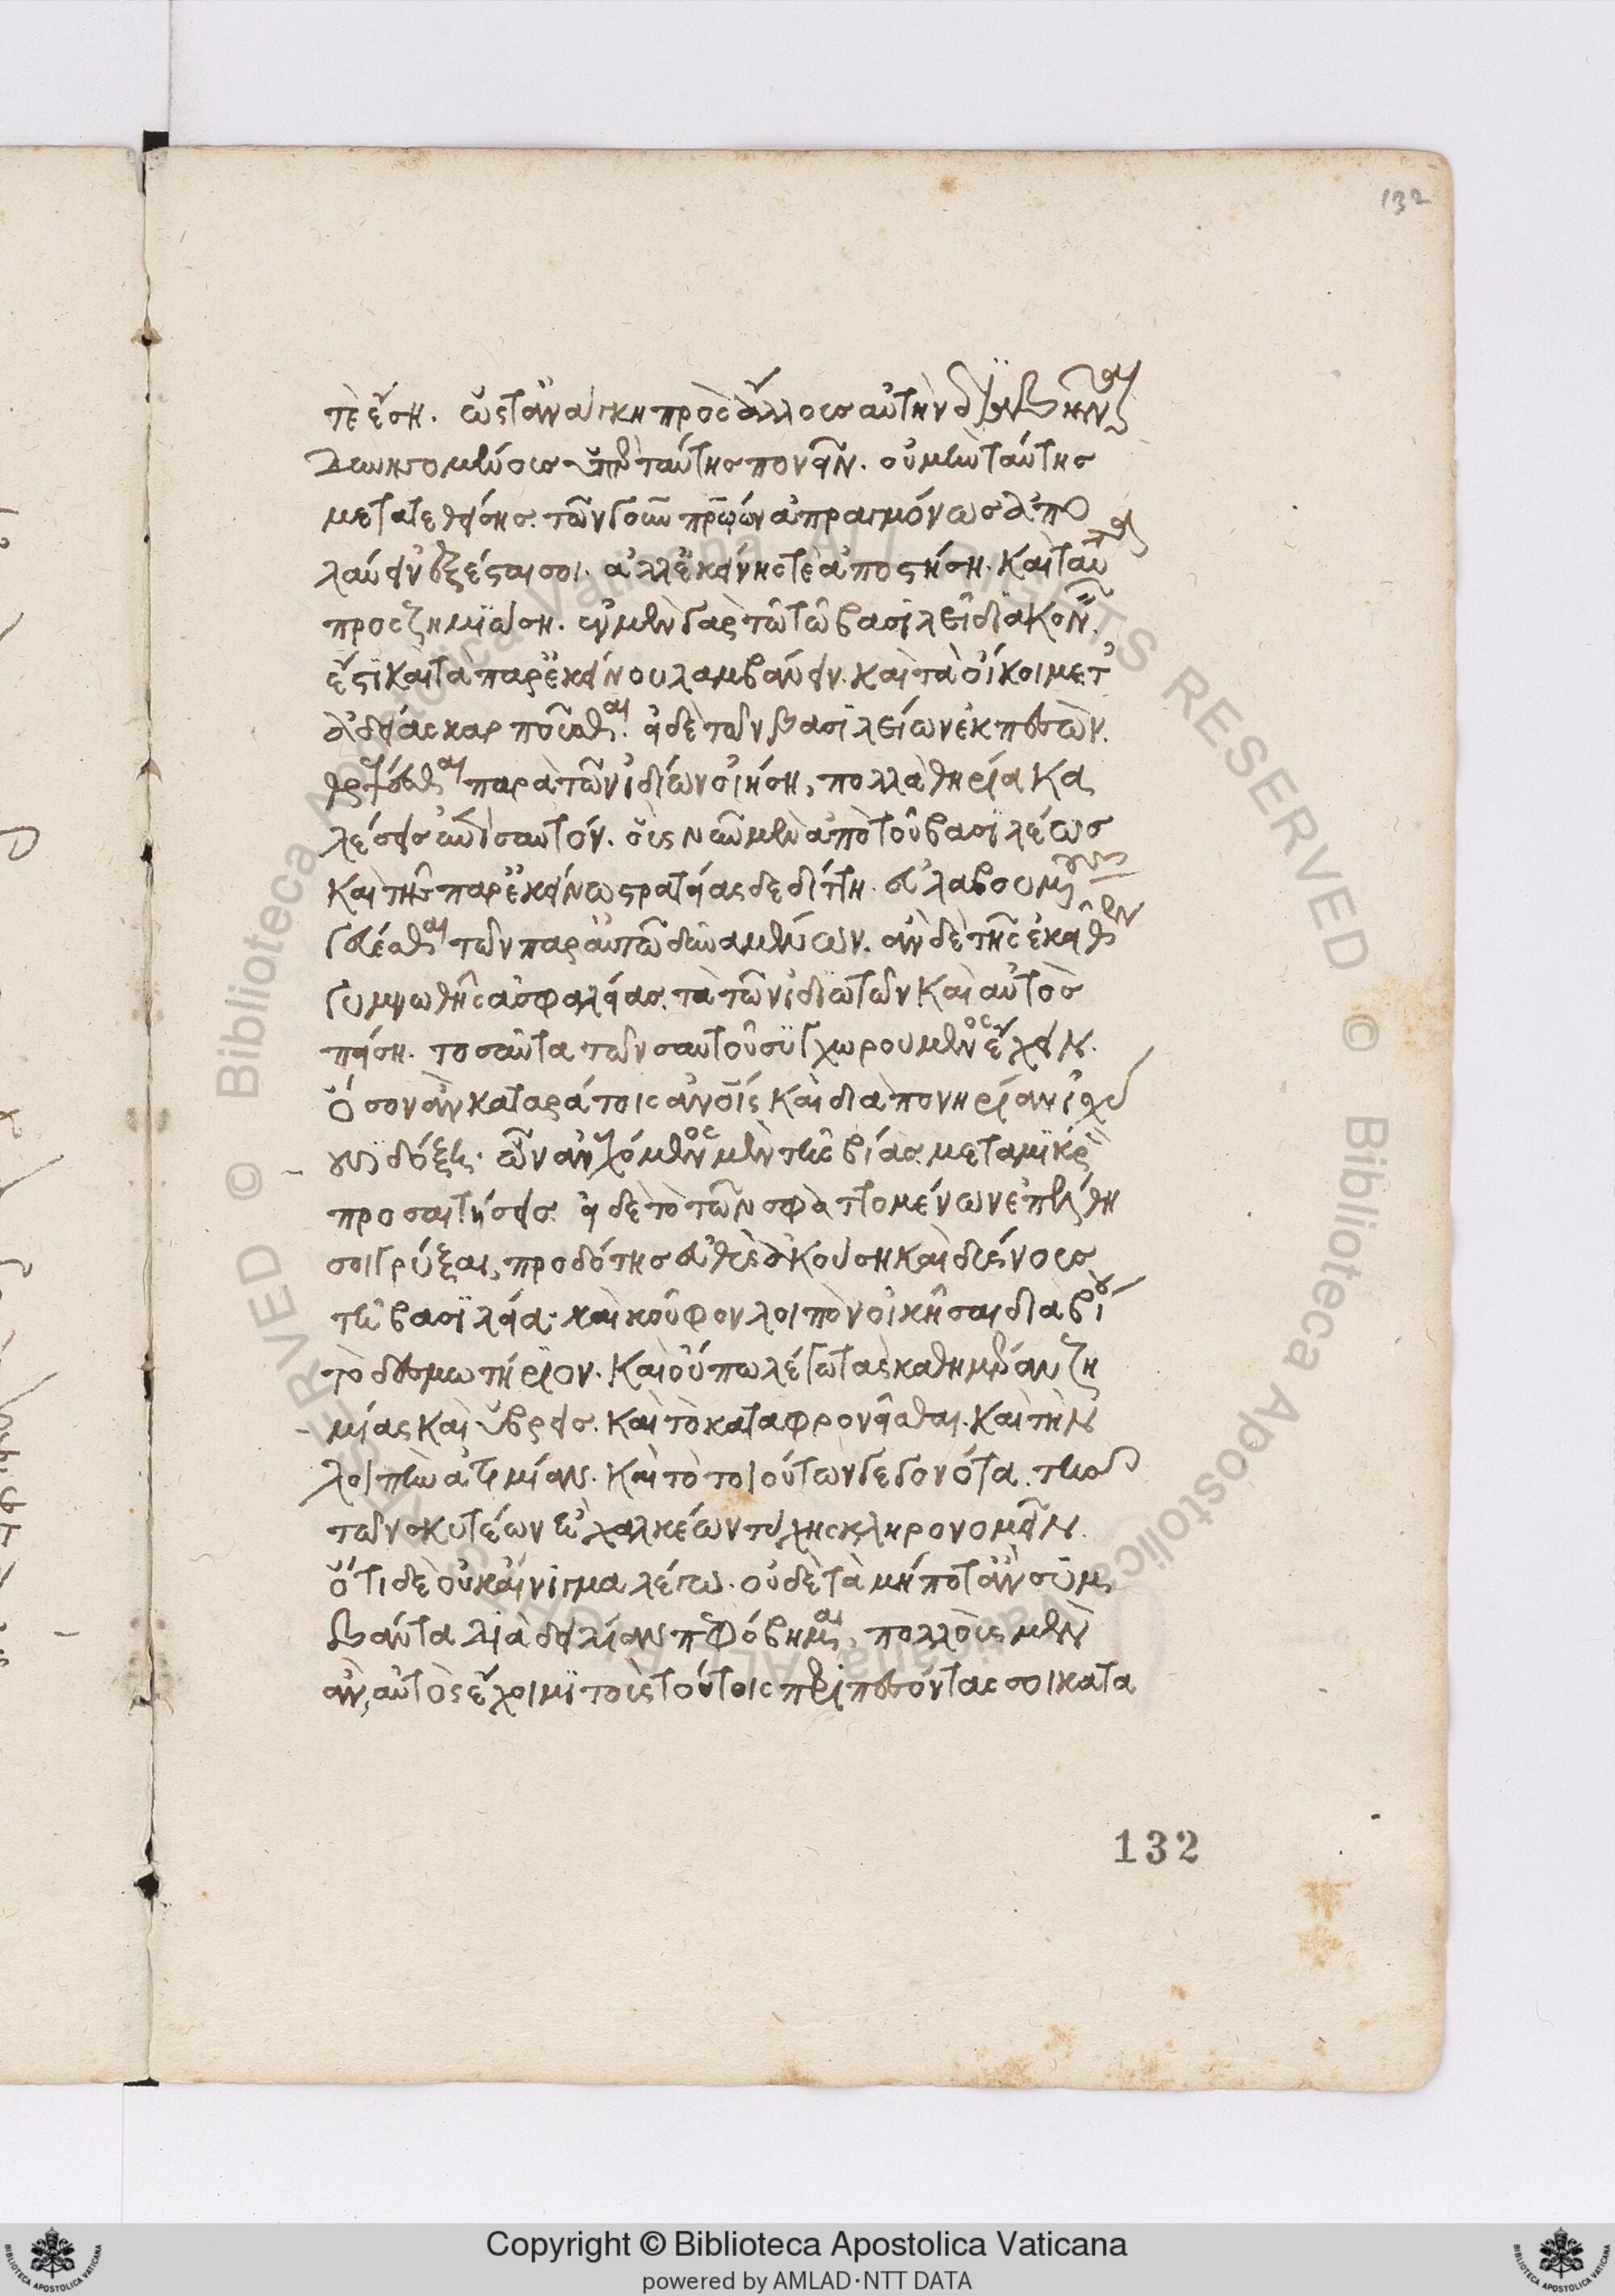 132
τὲ ἔσῃ. ὥστ' ἀνάγκη πρὸς ἄλλοις αὐτὴν
μένοις ὑπὲρ ταύτης πονεῖν. οὐ μὴν ταύτης
μετατεθείσης. τῶν γοῦν πρώην ἀπραγμόνως ἀπο
λαύειν ἐξέσται σοι. ἀλλ' ἐκείνης τὲ ἀποστήσῃ. καὶ
προσζημιώσῃ. νῦν μὲν γὰρ τῶ τῶ βασιλεῖ διακονεῖν.
ἔστι καὶ τὰ παρ' ἐκείνου λαμβάνειν. καὶ τὰ οἴκοι μετ'
ἀδείας καρποῦσθαι. εἰ δὲ τῶν βασιλείων ἐκπεσὼν.
παρὰ τῶν ἰδίων οἰήσῃ, πολλὰ θηρία κα
λέσεις ἐπὶ σαυτόν. οἷς νῦν μὲν ἀπὸ τοῦ βασιλέως
καὶ τῆς παρ' ἐκείνω στρατείας δεδίττῃ.
τῶν παρ' αὐτῶ δυναμένων. ἂν δὲ τῆς ἐκεῖθεν
γυμνωθῆς ἀσφαλείας. τὰ τῶν ἰδιωτῶν καὶ αὐτὸς
πείσῃ. τοσαῦτα τῶν σαυτοῦ συγχωρούμενος ἔχειν.
ὅσον ἂν καταράτοις ἀνοις καὶ διὰ πονηρίαν
δόξῃ. ὧν ἀνεχόμενος μὲν τῆς βίας μετὰ μικρὸν
προσαιτήσεις. εἰ δὲ τὸ τῶν σφαττομένων ἐπέλθῃ
σοι γρύξαι, προδότης εὐθὺς ἀκούσῃ καὶ δύσνους
τῆ βασιλεία. καὶ κοῦφον λοιπὸν οἰκῆσαι διὰ βίου
τὸ δεσμωτήριον. καὶ οὔπω λέγω τὰς καθημέραν ζη
μίας καὶ ὕβρεις. καὶ τὸ καταφρονεῖσθαι. καὶ τὴν
λοιπὴν ἀτιμίαν. καὶ τὸ τοιούτων γεγονότα. τὴν
τῶν σκυτέων ἢ χαλκέων τύχης κληρονομεῖν.
ὅτι δὲ οὐκ αἴνιγμα λέγω. οὐδὲ τὰ μήποτ' ἂν συμ
βάντα διὰ δειλίαν πεφόβημαι, πολλοὺς μὲν
ἂν, αὐτὸς ἔχοιμι τοῖς τούτοις περιπεσόντας σοι κατα
132
Copyright © Biblioteca Apostolica Vaticana
powered by AMLAD·NTT DATA